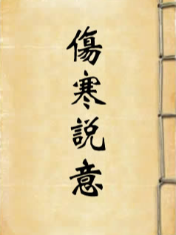 傷寒説意